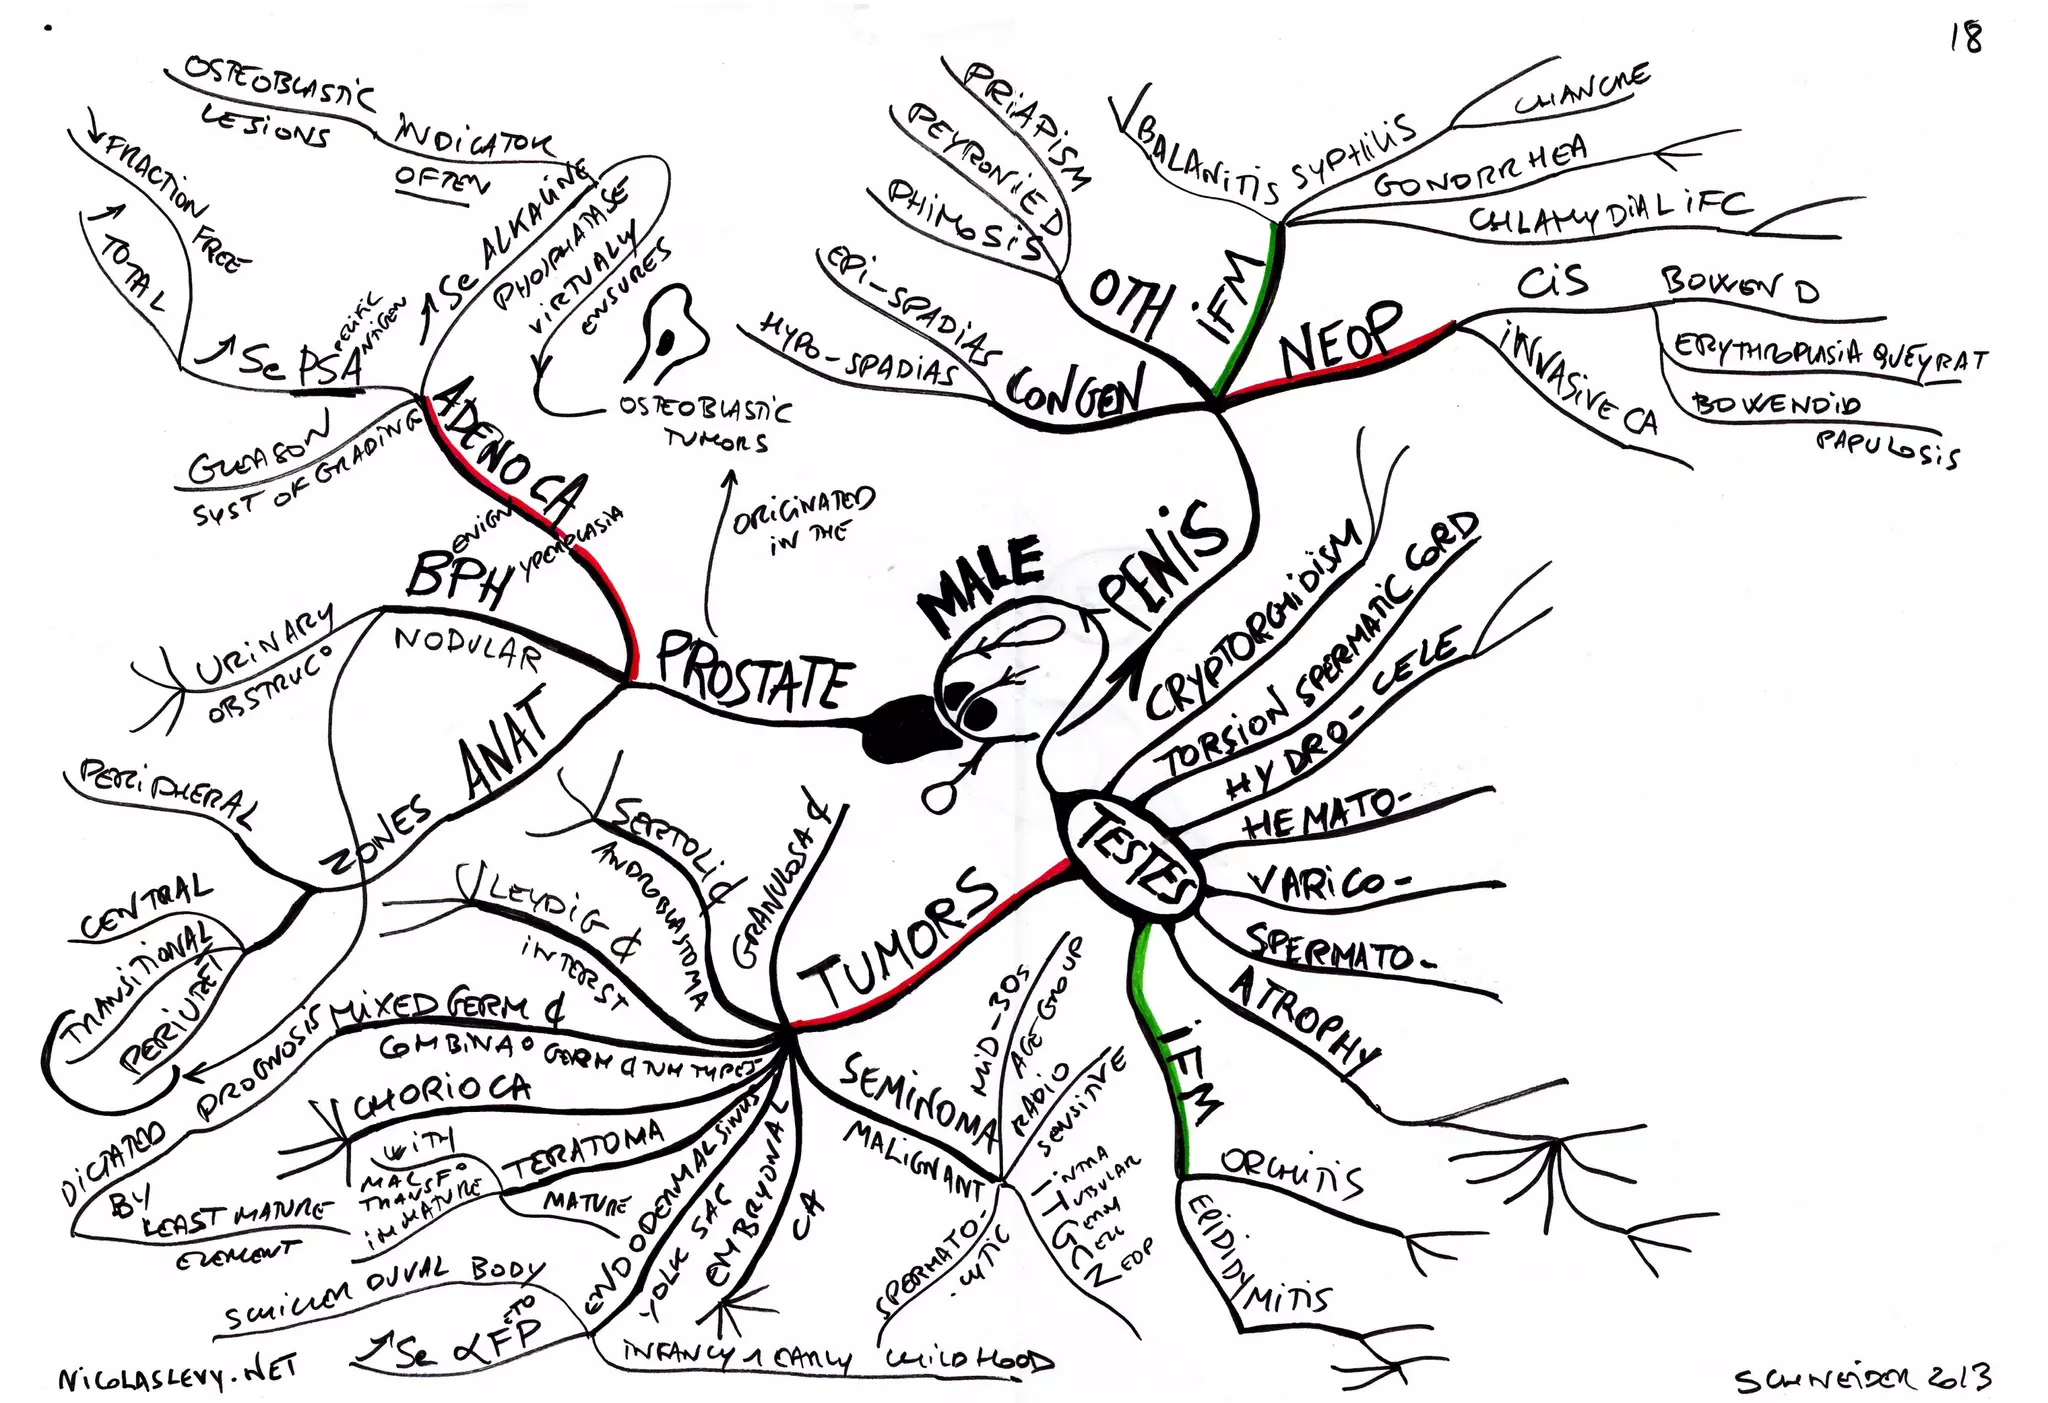 18
OSTEOBLASTIC
LESIONS
INDICATOR
OFTEN
↓FRACTION FREE
↗ TOTAL
↗ Se PSA
PECIFIC
NTIGEN
↗ Se ALKALINE
PHOSPHATASE
VIRTUALLY
ENSURES
OSTEOBLASTIC
TUMORS
ORIGINATED
IN THE
GLEASON
SYST OF GRADING
ADENOCA
BPH
ENIGN
YPERPLASIA
NODULAR
URINARY
OBSTRUC°
PROSTATE
ANAT
ZONES
PERIPHERAL
CENTRAL
TRANSITIONAL
PERIURET
MALE
PENIS
CONGEN
EPI-SPADIAS
HYPO-SPADIAS
OTH
PRIAPISM
PEYRONIE D
PHIMOSIS
iFM
BALANITIS
SYPHILIS
CHANCRE
GONORRHEA
CHLAMYDIAL iFC
NEOP
CiS
BOWEN D
ERYTHROPLASIA QUEYRAT
BOWENOID
PAPULOSIS
INVASIVE CA
TESTES
CRYPTORCHIDISM
TORSION SPERMATIC CORD
HYDRO-CELE
HEMATO-
VARICO-
SPERMATO-
ATROPHY
iFM
ORCHITIS
EPIDIDY
MITIS
TUMORS
GRANULOSA ¢
SERTOLI ¢
ANDROBLASTOMA
LEYDIG ¢
INTERST
MIXED GERM ¢
COMBINA° GERM ¢ TUM TYPES
PROGNOSIS
DICTATED
BY
LEAST MATURE
ELEMENT
CHORIOCA
TERATOMA
MATURE
IMMATURE
WITH
MALG
TRANSF°
ENDODERMAL SINUS
YOLK SAC
SCHILLER DUVAL BODY
↗Se αFP
ETO
INFANCY & EARLY CHILDHOOD
EMBRYONAL
CA
SEMINOMA
MALIGNANT
MID-30s
AGE GROUP
RADIO
SENSITIVE
INTRA
TUBULAR
GERM
CELL
NEOP
SPERMATO-
-CYTIC
NICOLASLEVY.NET
SCHNEIDER 2013